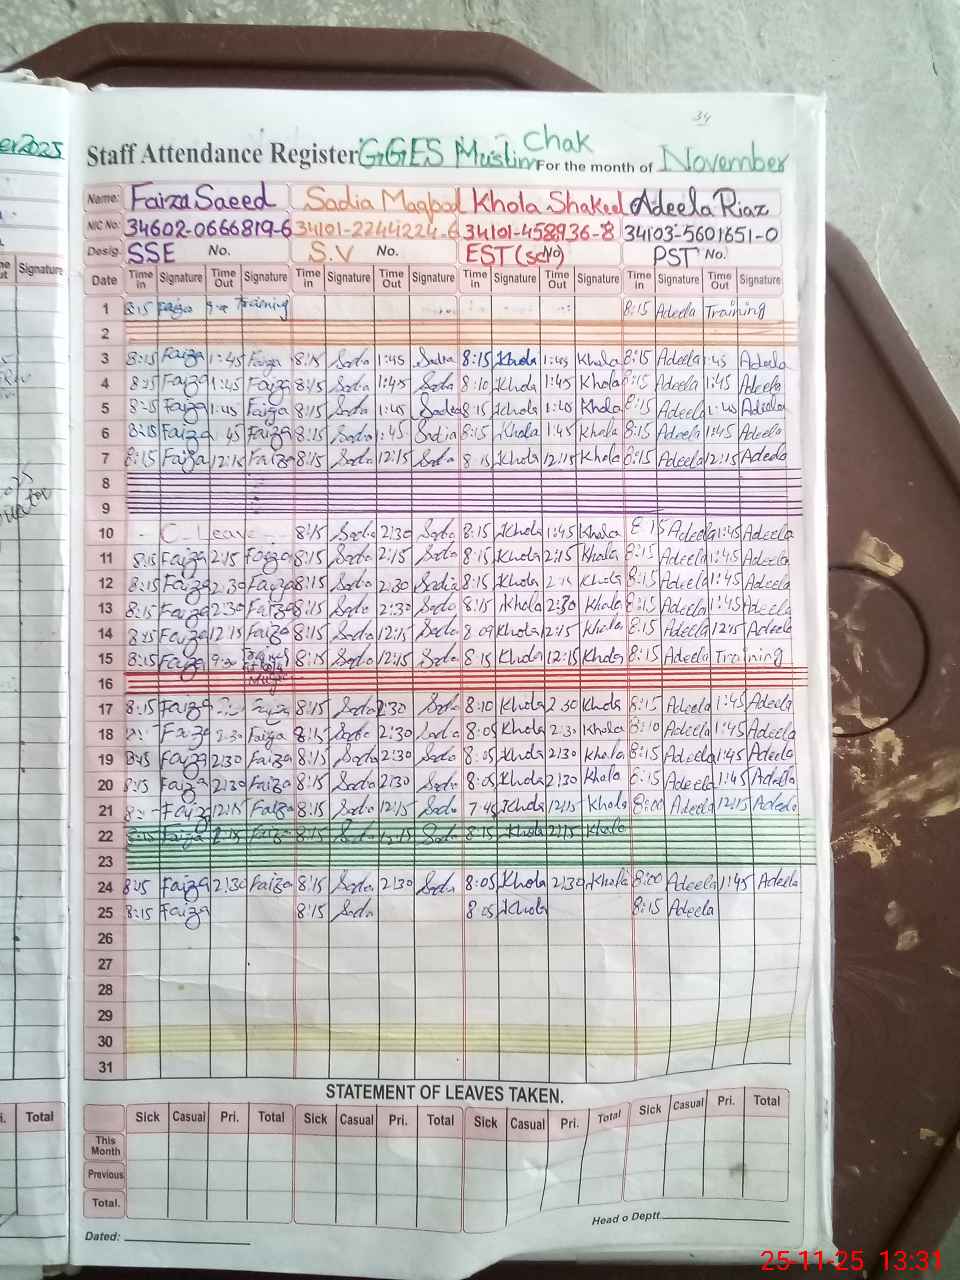 er2025
34
Staff Attendance Register GGES Muslim Chak For the month of November
Name: Faiza Saeed Sadia Maqbool Khola Shakeel Adeela Riaz
NIC No: 34602-0666819-6 34101-2244224-6 34101-458936-8 34103-5601651-0
Desig. SSE No. S.V No. EST (sci) No. PST No.
Signature Date Time in Signature Time Out Signature Time in Signature Time Out Signature Time in Signature Time Out Signature Time in Signature Time Out Signature
1 8:15 Faiza Training 8:15 Adeela Training
2
3 8:15 Faiza 1:45 Faiza 8:15 Sadia 1:45 Sadia 8:15 Khola 1:45 Khola 8:15 Adeela 1:45 Adeela
4 8:15 Faiza 1:45 Faiza 8:15 Sadia 1:45 Sadia 8:10 Khola 1:45 Khola 8:15 Adeela 1:45 Adeela
5 8:15 Faiza 1:45 Faiza 8:15 Sadia 1:45 Sadia 8:15 Khola 1:45 Khola 8:15 Adeela 1:45 Adeela
6 8:15 Faiza 45 Faiza 8:15 Sadia 1:45 Sadia 8:15 Khola 1:45 Khola 8:15 Adeela 1:45 Adeela
7 8:15 Faiza 12:15 Faiza 8:15 Sadia 12:15 Sadia 8:15 Khola 12:15 Khola 8:15 Adeela 12:15 Adeela
8
9
10 C. Leave 8:15 Sadia 2:30 Sadia 8:15 Khola 1:45 Khola 8:15 Adeela 1:45 Adeela
11 8:15 Faiza 2:15 Faiza 8:15 Sadia 2:15 Sadia 8:15 Khola 2:15 Khola 8:15 Adeela 1:45 Adeela
12 8:15 Faiza 2:30 Faiza 8:15 Sadia 2:30 Sadia 8:15 Khola 2:15 Khola 8:15 Adeela 1:45 Adeela
13 8:15 Faiza 2:30 Faiza 8:15 Sadia 2:30 Sadia 8:15 Khola 2:30 Khola 8:15 Adeela 1:45 Adeela
14 8:15 Faiza 12:15 Faiza 8:15 Sadia 12:15 Sadia 8:09 Khola 12:15 Khola 8:15 Adeela 12:15 Adeela
15 8:15 Faiza 8:15 Sadia 12:15 Sadia 8:15 Khola 12:15 Khola 8:15 Adeela Training
16
17 8:15 Faiza Faiza 8:15 Sadia 2:30 Sadia 8:10 Khola 2:30 Khola 8:15 Adeela 1:45 Adeela
18 Faiza 2:30 Faiza 8:15 Sadia 2:30 Sadia 8:05 Khola 2:30 Khola 8:10 Adeela 1:45 Adeela
19 8:15 Faiza 2:30 Faiza 8:15 Sadia 2:30 Sadia 8:05 Khola 2:30 Khola 8:15 Adeela 1:45 Adeela
20 8:15 Faiza 2:30 Faiza 8:15 Sadia 2:30 Sadia 8:05 Khola 2:30 Khola 8:15 Adeela 1:45 Adeela
21 Faiza 12:15 Faiza 8:15 Sadia 12:15 Sadia 7:45 Khola 12:15 Khola 8:00 Adeela 12:15 Adeela
22 8:15 Faiza Faiza 8:15 Sadia 12:15 Sadia 8:15 Khola 2:15 Khola
23
24 8:15 Faiza 2:30 Faiza 8:15 Sadia 2:30 Sadia 8:05 Khola 2:30 Khola 8:00 Adeela 1:45 Adeela
25 8:15 Faiza 8:15 Sadia 8:05 Khola 8:15 Adeela
26
27
28
29
30
31
STATEMENT OF LEAVES TAKEN.
Total Sick Casual Pri. Total Sick Casual Pri. Total Sick Casual Pri. Total Sick Casual Pri. Total
This Month
Previous
Total.
Dated: Head o Deptt.
25-11-25 13:31